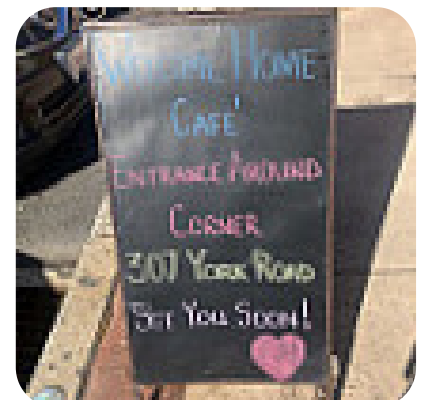 WELCOME HOME
CAFE'
ENTRANCE AROUND
CORNER
307 YORK ROAD
SEE YOU SOON!